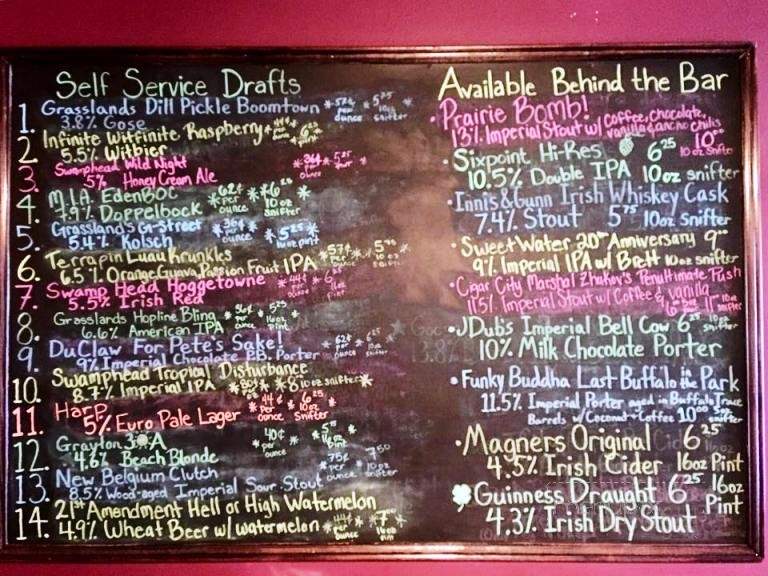 Self Service Drafts
1. Grasslands Dill Pickle Boomtown * 52¢ per ounce * 5.75 10oz snifter
3.8% Gose
2. Infinite Witfinite Raspberry
5.5% Witbier
3. Swamphead Wild Night * 36¢
5% Honey Cream Ale
4. M.I.A. EdenBOC * 62¢ per ounce * 6.25 10oz snifter
7.9% Doppelbock
5. Grassland's G-Street * 36¢ per ounce * 5.25 16oz pint
5.4% Kolsch
6. Terrapin Luau Krunkles * 57¢ per ounce
6.5% Orange Guava Passion Fruit IPA
7. Swamp Head Hoggetowne * 44¢ per ounce
5.5% Irish Red
8. Grasslands Hopline Bling * 36¢ per ounce
6.6% American IPA
9. DuClaw For Pete's Sake! * 62¢ per ounce
9% Imperial Chocolate P.B. Porter
10. Swamphead Tropical Disturbance * 80¢ per ounce * 8 10oz snifter *
8.7% Imperial IPA
11. Harp * 44¢ per ounce
5% Euro Pale Lager
12. Grayton 30A * 40¢ per ounce
4.6% Beach Blonde
13. New Belgium Clutch * 75¢ per ounce * 7.50 10oz snifter
8.5% Wood-aged Imperial Sour Stout
14. 21st Amendment Hell or High Watermelon
4.9% Wheat Beer w/ watermelon * 44¢ per ounce
Available Behind the Bar
• Prairie Bomb!
13% Imperial Stout w/ coffee, chocolate, vanilla & ancho chilis 10.00 10oz snifter
• Sixpoint Hi-Res 6.25
10.5% Double IPA 10oz snifter
• Innis & Gunn Irish Whiskey Cask
7.4% Stout 5.75 10oz Snifter
• SweetWater 20th Anniversary 9.00
9% Imperial IPA w/ Brett 10oz snifter
• Cigar City Marshal Zhukov's Penultimate Push
11.5% Imperial Stout w/ Coffee & vanilla
• JDubs Imperial Bell Cow 6.25 10oz snifter
10% Milk Chocolate Porter
• Funky Buddha Last Buffalo in the Park
11.5% Imperial Porter aged in Buffalo Trace
Barrels w/ Coconut + Coffee 10.00 10oz snifter
• Magners Original 6.25
4.5% Irish Cider 16oz Pint
Guinness Draught 6.25 16oz Pint
4.3% Irish Dry Stout